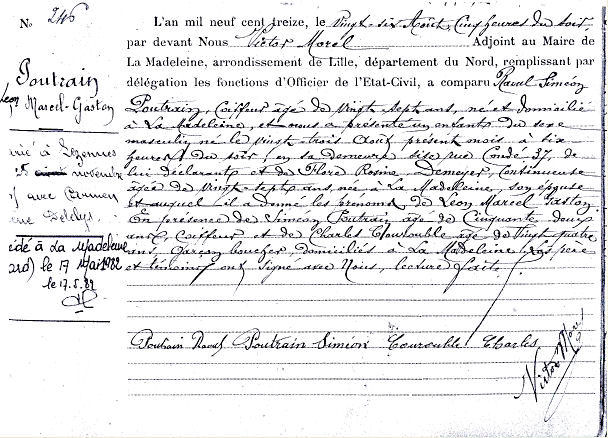 N° 246
Poutrain
Léon
Marcel-Gaston
rié à Lezennes
novembre
avec
Zeldys
édé à La Madeleine
ord) le 17 Mai 1982
le 17.5.82
L'an mil neuf cent treize, le vingt-six Août, Cinq heures du soir,
par devant Nous Victor Morel Adjoint au Maire de
La Madeleine, arrondissement de Lille, département du Nord, remplissant par
délégation les fonctions d'Officier de l'Etat-Civil, a comparu Raoul Siméon
Poutrain, Coiffeur âgé de Vingt Sept ans, né et domicilié
à La Madeleine, et nous a présenté un enfant du sexe
masculin né le vingt trois Août présent mois à six
heures du soir, en sa demeure sise rue Condé 37, de
lui déclarant et de Flore Rosine Demeyer, Continueuse
âgée de Vingt-sept ans, née à La Madeleine, son épouse
et auquel il a donné les prénoms de Léon Marcel Gaston
En présence de Siméon Poutrain âgé de Cinquante deux
ans, Coiffeur et de Charles Courouble âgé de Vingt quatre
ans, garçon boucher, domiciliés à La Madeleine père
et témoins ont signé avec Nous, lecture faite.
Poutrain Raoul Poutrain Siméon Courouble Charles
Victor Morel